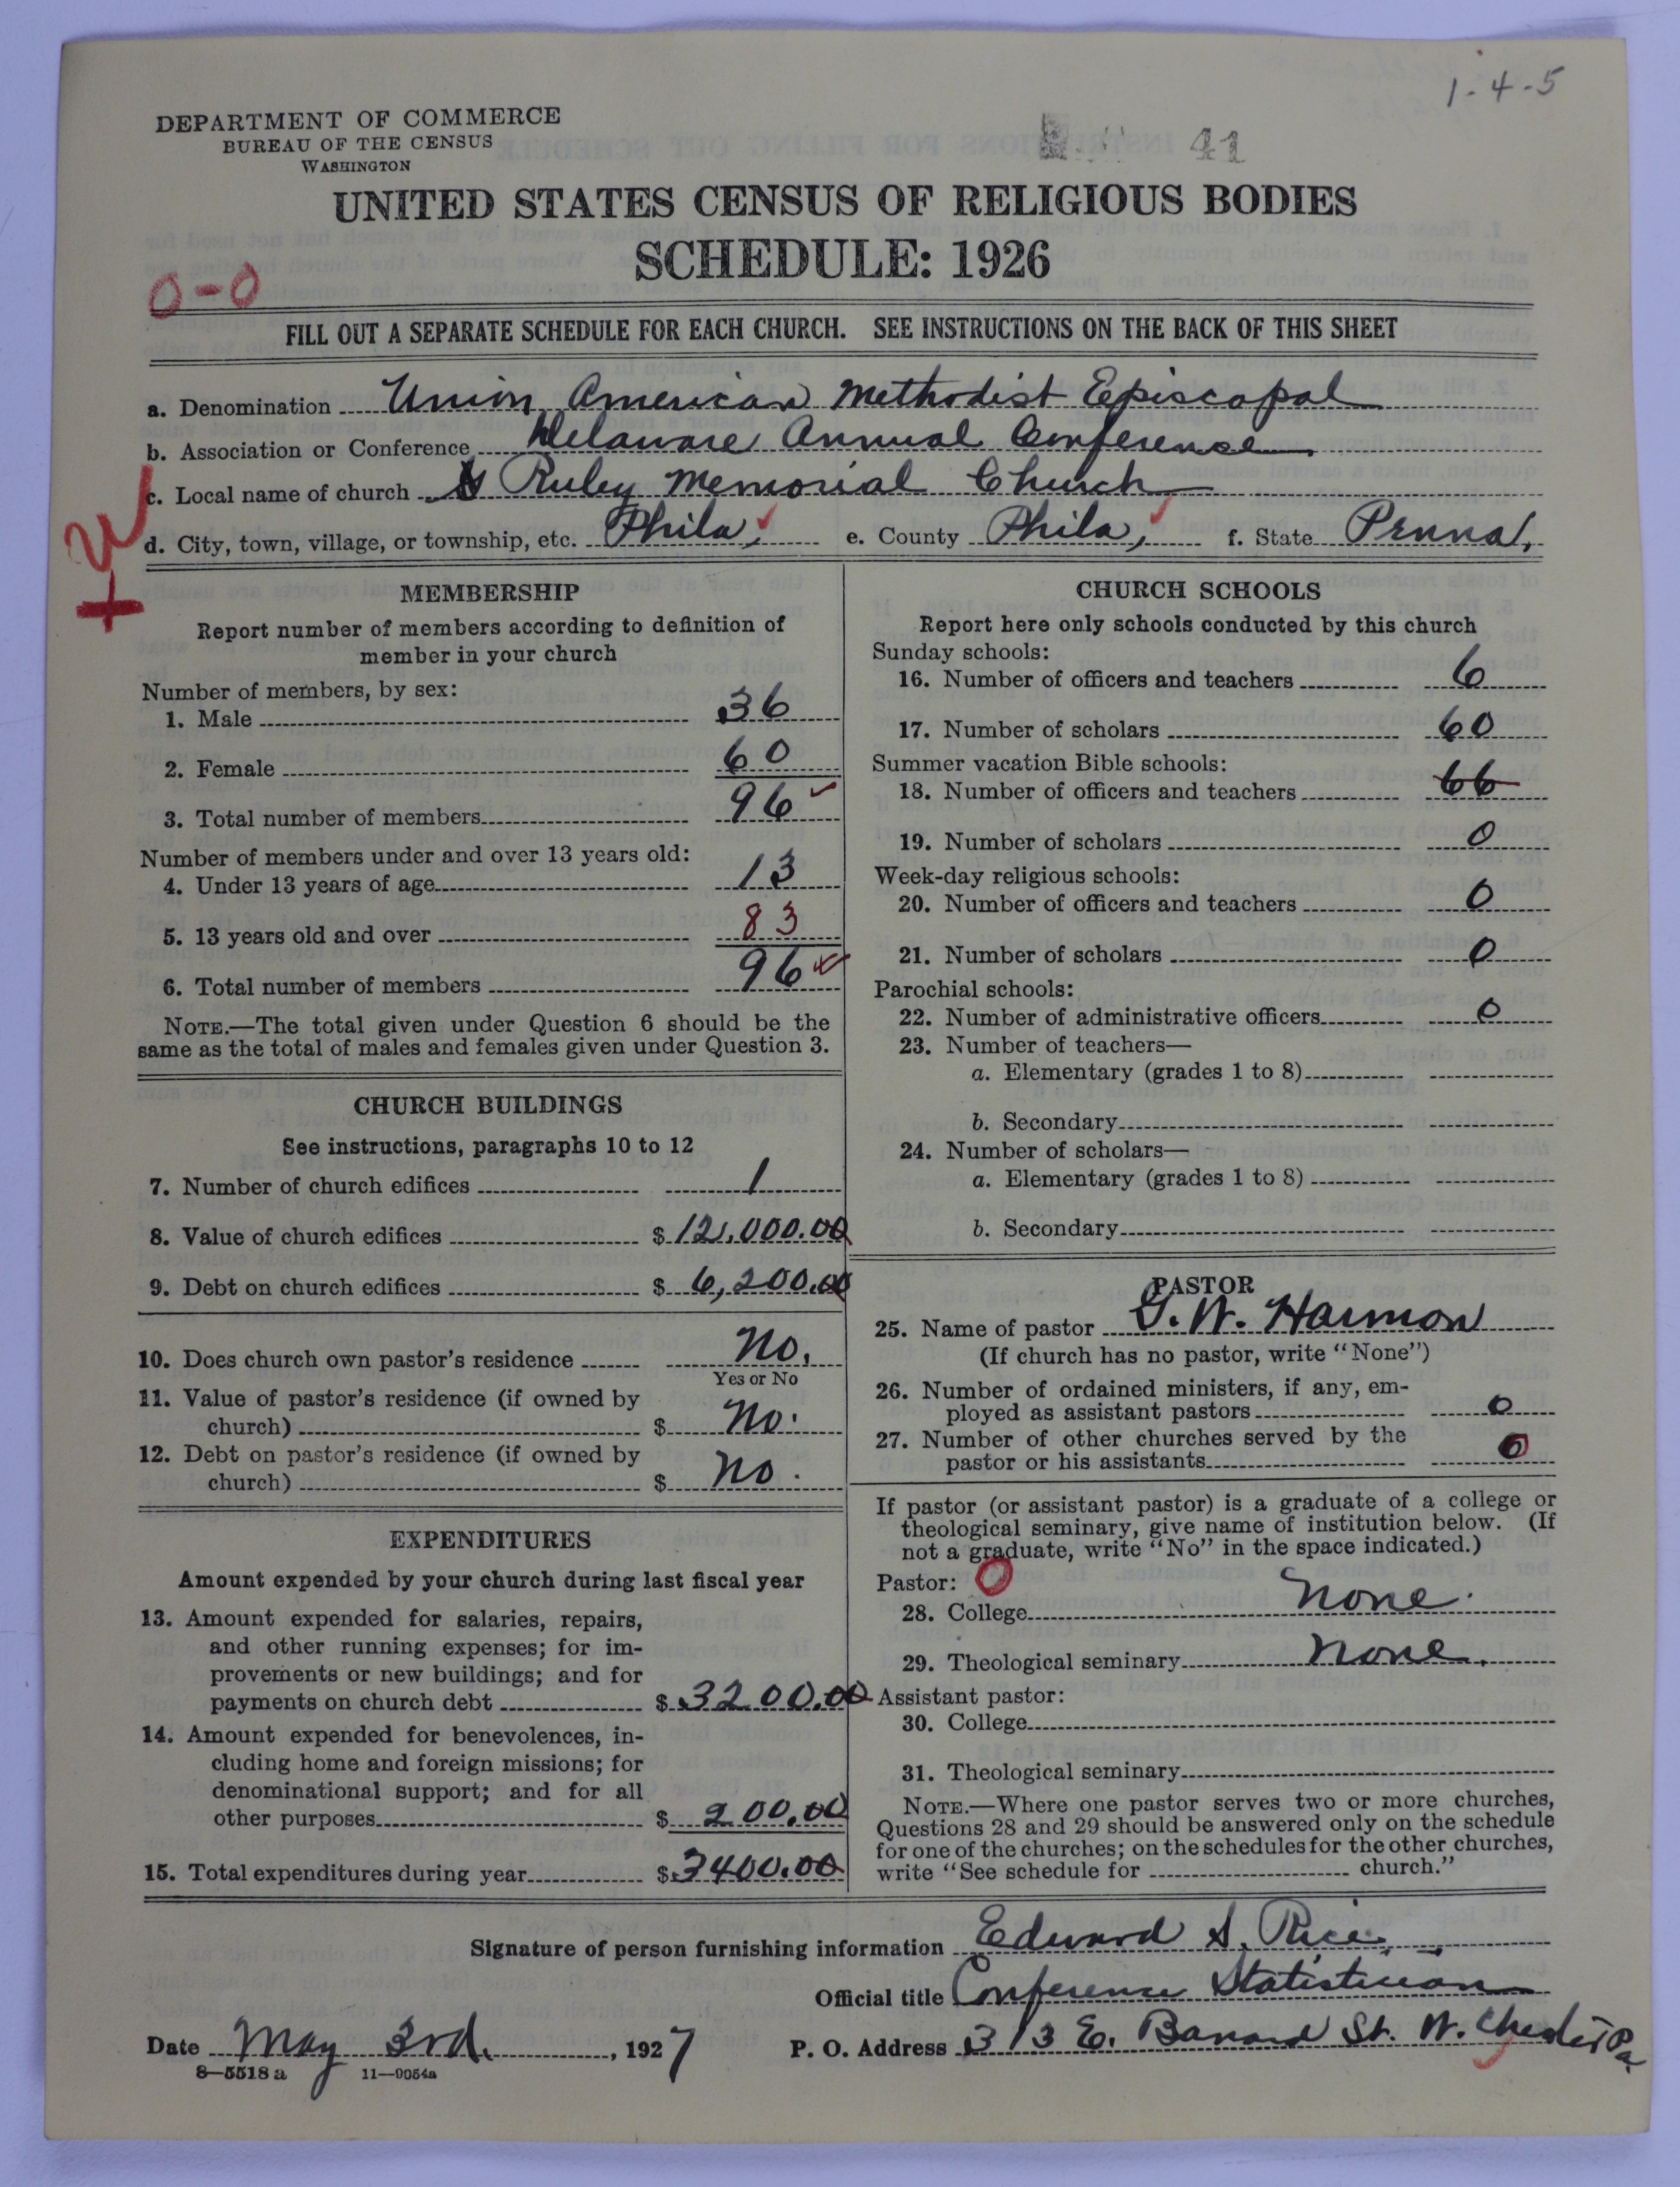 1-4-5
DEPARTMENT OF COMMERCE
BUREAU OF THE CENSUS
WASHINGTON
41
UNITED STATES CENSUS OF RELIGIOUS BODIES
SCHEDULE: 1926
0-0
FILL OUT A SEPARATE SCHEDULE FOR EACH CHURCH. SEE INSTRUCTIONS ON THE BACK OF THIS SHEET
a. Denomination Union American Methodist Episcopal
b. Association or Conference Delaware Annual Conference
c. Local name of church Ruley Memorial Church
d. City, town, village, or township, etc. Phila, e. County Phila, f. State Penna,
MEMBERSHIP
Report number of members according to definition of
member in your church
Number of members, by sex:
1. Male 36
2. Female 60
3. Total number of members 96
Number of members under and over 13 years old:
4. Under 13 years of age 13
5. 13 years old and over 83
6. Total number of members 96
NOTE.—The total given under Question 6 should be the
same as the total of males and females given under Question 3.
CHURCH BUILDINGS
See instructions, paragraphs 10 to 12
7. Number of church edifices 1
8. Value of church edifices $ 12,000.00
9. Debt on church edifices $ 6,200.00
10. Does church own pastor's residence No.
Yes or No
11. Value of pastor's residence (if owned by
church) $ No.
12. Debt on pastor's residence (if owned by
church) $ No.
EXPENDITURES
Amount expended by your church during last fiscal year
13. Amount expended for salaries, repairs,
and other running expenses; for im-
provements or new buildings; and for
payments on church debt $ 3200.00
14. Amount expended for benevolences, in-
cluding home and foreign missions; for
denominational support; and for all
other purposes $ 200.00
15. Total expenditures during year $ 3400.00
CHURCH SCHOOLS
Report here only schools conducted by this church
Sunday schools:
16. Number of officers and teachers 6
17. Number of scholars 60
Summer vacation Bible schools:
18. Number of officers and teachers 66
19. Number of scholars 0
Week-day religious schools:
20. Number of officers and teachers 0
21. Number of scholars 0
Parochial schools:
22. Number of administrative officers 0
23. Number of teachers—
a. Elementary (grades 1 to 8)
b. Secondary
24. Number of scholars—
a. Elementary (grades 1 to 8)
b. Secondary
PASTOR
25. Name of pastor G. W. Harmon
(If church has no pastor, write "None")
26. Number of ordained ministers, if any, em-
ployed as assistant pastors 0
27. Number of other churches served by the
pastor or his assistants 0
If pastor (or assistant pastor) is a graduate of a college or
theological seminary, give name of institution below. (If
not a graduate, write "No" in the space indicated.)
Pastor: 0
28. College None.
29. Theological seminary None.
Assistant pastor:
30. College
31. Theological seminary
NOTE.—Where one pastor serves two or more churches,
Questions 28 and 29 should be answered only on the schedule
for one of the churches; on the schedules for the other churches,
write "See schedule for church."
Signature of person furnishing information Edward S. Rice
Official title Conference Statistician
Date May 3rd. , 1927 P. O. Address 313 E. Barnard St. W. Chester Pa.
8—5518 a 11—9054a